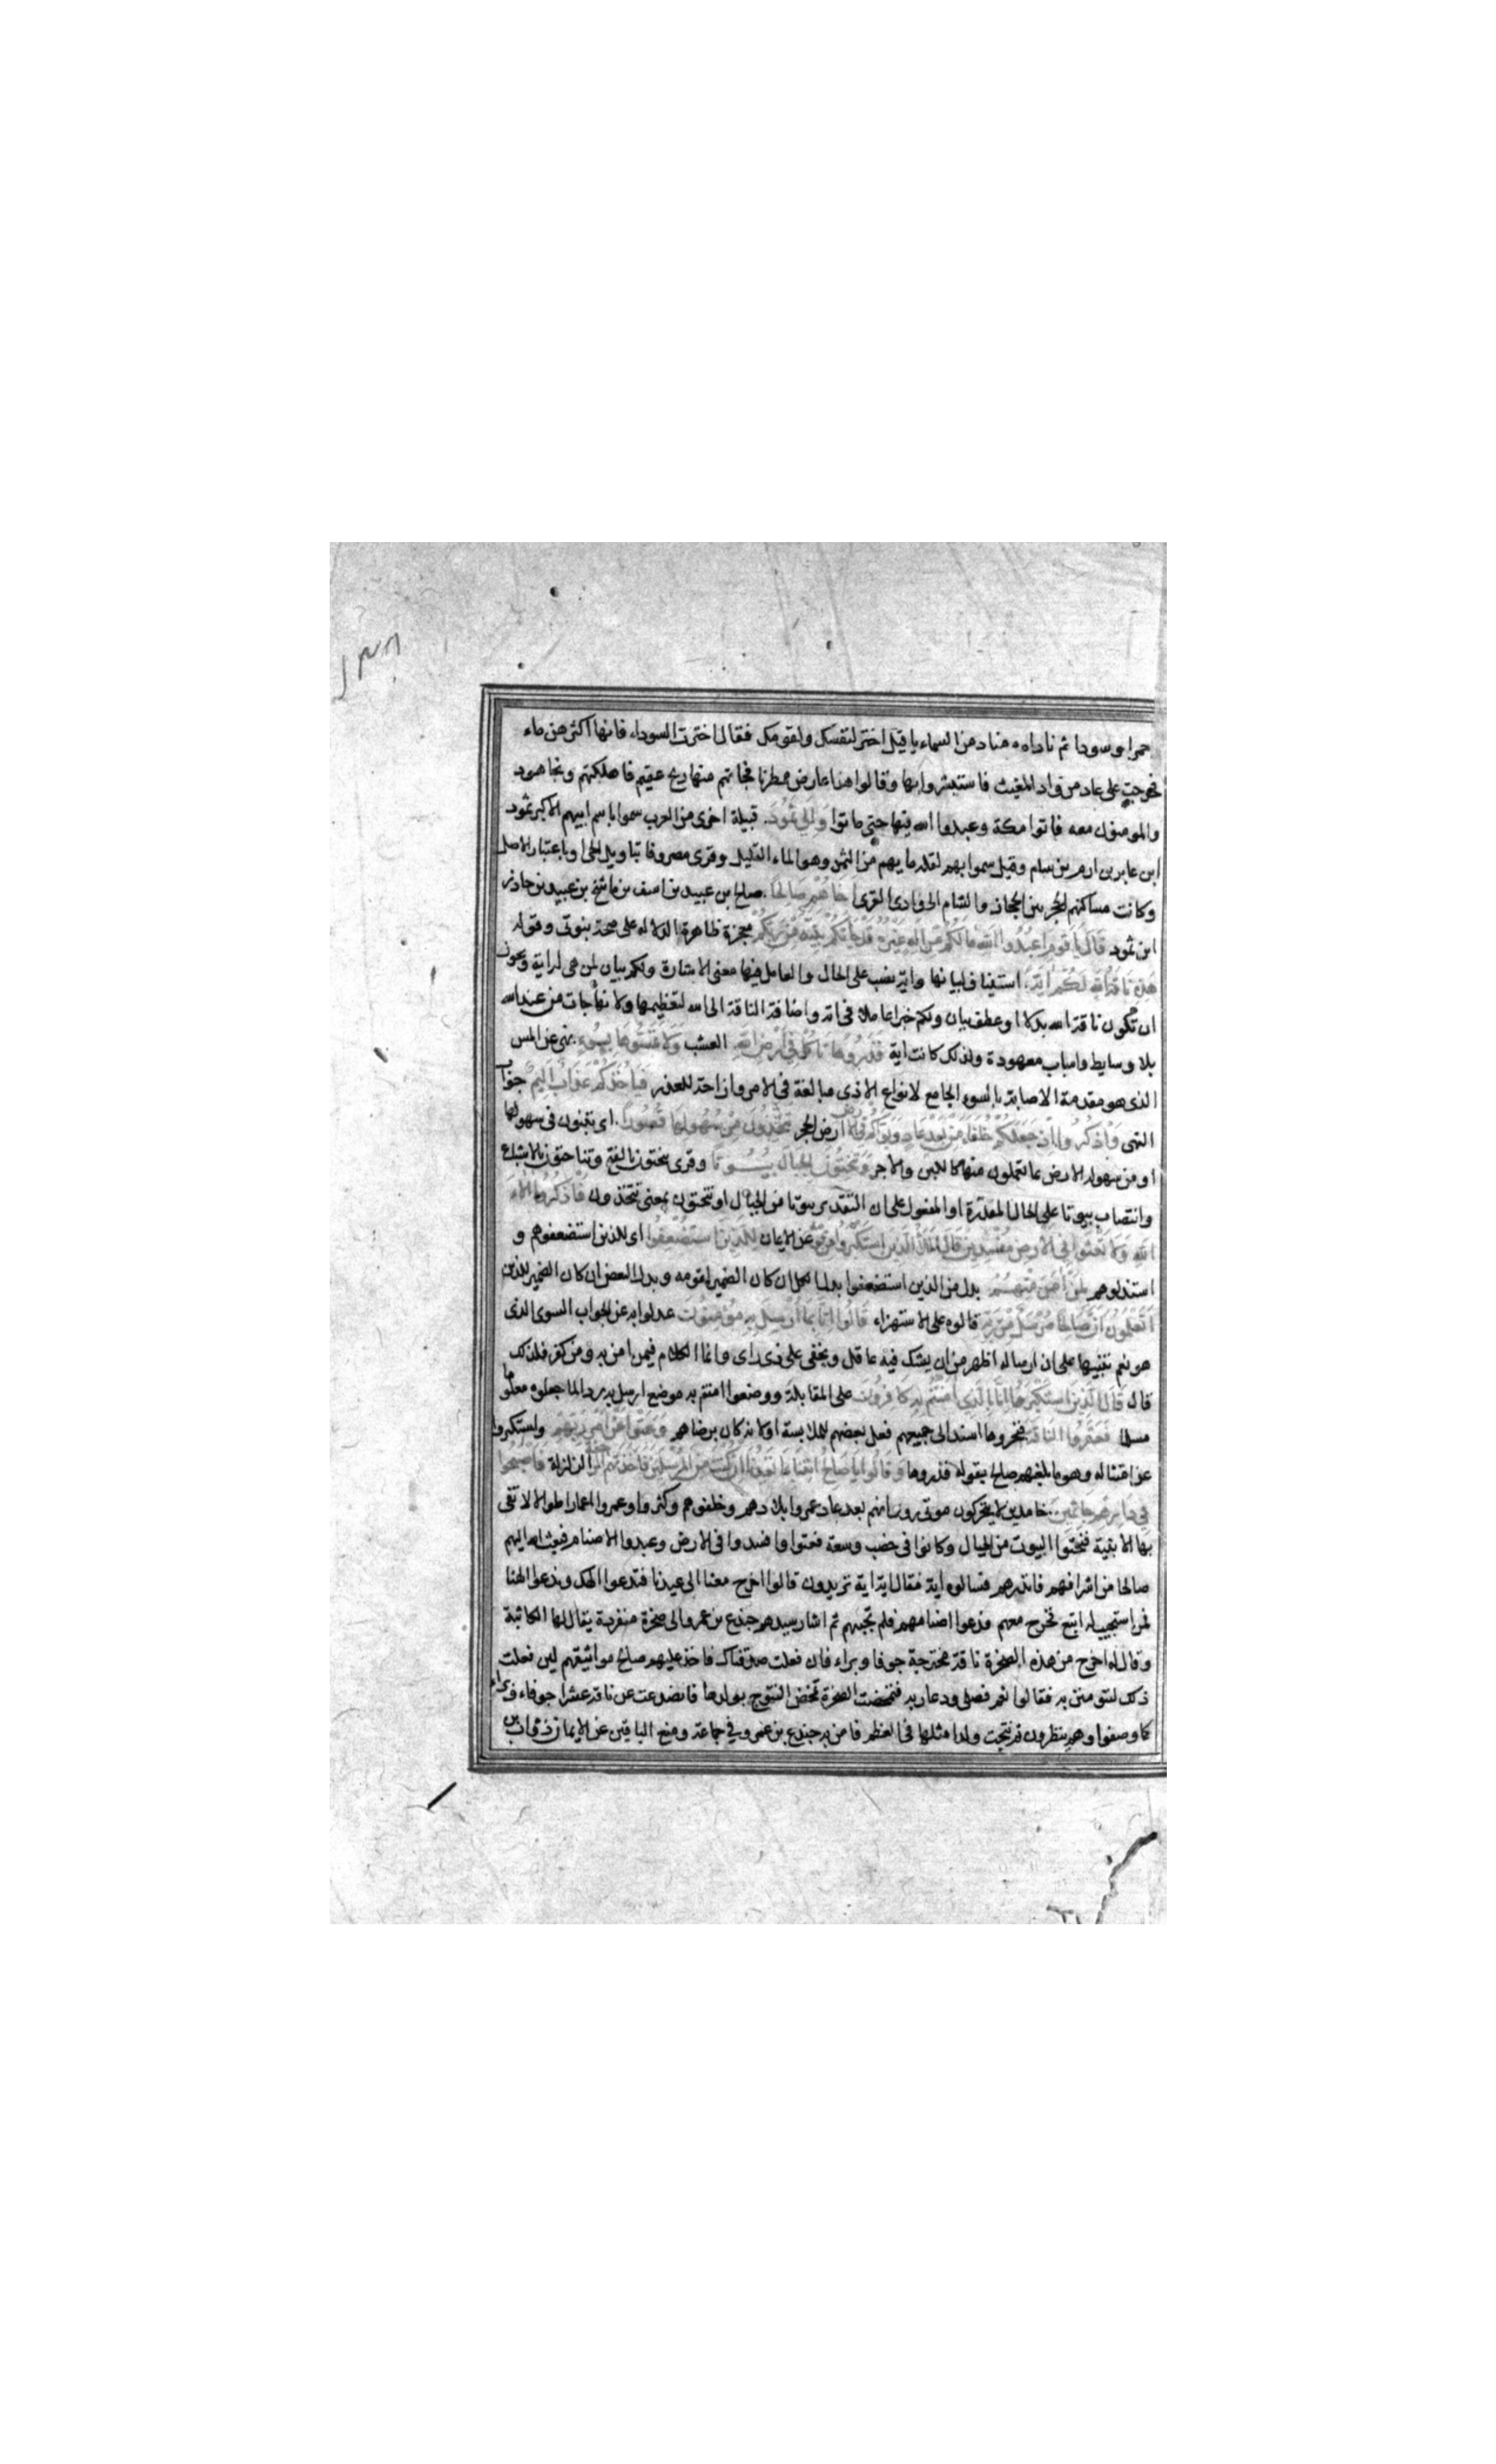 ١٣٨
حمرا وسودا ثم ناداه مناد من السماء يا قيل اختر لنفسك ولقومك فقال اخترت السوداء فانها اكثرهن ماء
فخرجت على عاد من واد المغيث فاستبشروا بها وقالوا هذا عارض ممطرنا فجاتهم منها ريح عقيم فاهلكتهم ونجا هود
والمومنون معه فاتوا مكة وعبدوا الله فيها حتى ماتوا وَالى ثَمُودَ. قبيلة اخرى من العرب سموا باسم ابيهم الاكبر ثمود
ابن عابر بن ارم بن سام وقيل سموا بهم لقلة مايهم من الثمد وهو الماء القليل وقرى مصروفا بتاويل الحى او باعتبار الاصل
وكانت مساكنهم الحجر بين الحجاز والشام الى وادى القرى اَخَاهُمْ صَالِحًا. صالح بن عبيد بن اسف بن ماشخ بن عبيد بن حاذر
ابن ثمود قَالَ يَا قَوْمِ اعْبُدُوا اللهَ مَا لَكُمْ مِنْ الهٍ غَيْرُهُ قَدْ جَاءَتْكُمْ بَيِّنَةٌ مِنْ رَبِّكُمْ معجزة ظاهرة الدلالة على صحة نبوتى وقوله
هَذِهِ نَاقَةُ اللهِ لَكُمْ ايَةً. استيناف لبيانها واية نصب على الحال والعامل فيها معنى الاشارة ولكم بيان لمن هى له اية ويجوز
ان تكون ناقة الله بدلا او عطف بيان ولكم خبرا عاملا فى اية واضافة الناقة الى الله لتعظيمها ولانها جات من عند الله
بلا وسايط واسباب معهودة ولذلك كانت اية فَذَرُوهَا تَاكُلْ فِي اَرْضِ اللهِ. العشب وَلَا تَمَسُّوهَا بِسُوءٍ. نهى عن المس
الذى هو مقدمة الاصابة بالسوء الجامع لانواع الاذى مبالغة فى الامر وازاحة للعذر فَيَاخُذَكُمْ عَذَابٌ اَلِيمٌ جواب
النهى وَاذْكُرُوا اِذْ جَعَلَكُمْ خُلَفَاءَ مِنْ بَعْدِ عَادٍ وَبَوَّاَكُمْ فِي الارض ارض الحجر تَتَّخِذُونَ مِنْ سُهُولِهَا قُصُورًا. اى تبنون فى سهولها
او من سهولة الارض بما تعملون منها كاللبن والاجر وَتَنْحِتُونَ الجِبَالَ بُيُوتًا وقرى تنحتون بالفتح وتناحتون بالاشباع
وانتصاب بيوتا على الحال المقدرة او المفعول على ان التقدير بيوتا من الجبال او تنحتون بمعنى تتخذون فَاذْكُرُوا الَاءَ
اللهِ وَلَا تَعْثَوْا فِي الارْضِ مُفْسِدِينَ قَالَ الْمَلَأُ الَّذِينَ اسْتَكْبَرُوا مِنْ قَوْمِهِ عن الايمان لِلَّذِينَ اسْتُضْعِفُوا اى للذين استضعفوهم و
استذلوهم لِمَنْ امَنَ مِنْهُمْ. بدل من الذين استضعفوا بدل الكل ان كان الضمير لقومه وبدل البعض ان كان الضمير للذين
اَتَعْلَمُونَ اَنَّ صَالِحًا مُرْسَلٌ مِنْ رَبِّهِ قالوه على الاستهزاء قَالُوا اِنَّا بِمَا اُرْسِلَ بِهِ مُؤْمِنُونَ عدلوا به عن الجواب السوى الذى
هو نعم تنبيها على ان ارساله اظهر من ان يشك فيه عاقل ويخفى على ذى راى وانما الكلام فيمن امن به ومن كفر فلذلك
قال قَالَ الَّذِينَ اسْتَكْبَرُوا اِنَّا بِالَّذِي امَنْتُمْ بِهِ كَافِرُونَ على المقابلة ووضعوا امنتم به موضع ارسل به ردا لما جعلوه معلوما
مسلما فَعَقَرُوا النَّاقَةَ فنحروها اسند الى جميعهم فعل بعضهم للملابسة او لانه كان برضاهم وَعَتَوْا عَنْ اَمْرِ رَبِّهِمْ واستكبروا
عن امتثاله وهو ما بلغهم صالح بقوله فذروها وَقَالُوا يَا صَالِحُ ائْتِنَا بِمَا تَعِدُنَا اِنْ كُنْتَ مِنَ الْمُرْسَلِينَ فَاَخَذَتْهُمُ الرَّجْفَةُ الزلزلة فَاَصْبَحُوا
فِي دَارِهِمْ جَاثِمِينَ.. خامدين لا يتحركون موتى روى انهم بعد عاد عمروا بلادهم وخلفوهم وكثروا وعمروا اعمارا طوالا لا تفى
بها الابنية فنحتوا البيوت من الجبال وكانوا فى خصب وسعة فعتوا وافسدوا فى الارض وعبدوا الاصنام فبعث الله اليهم
صالحا من اشرافهم فانذرهم فسالوه اية فقال اية اية تريدون قالوا اخرج معنا الى عيدنا فتدعوا الهك وندعوا الهنا
فمن استجيب له اتبع فخرج معهم فدعوا اصنامهم فلم تجبهم ثم اشار سيدهم جندع بن عمرو الى صخرة منفردة يقال لها الكاثبة
وقال له اخرج من هذه الصخرة ناقة مخترجة جوفا وبراء فان فعلت صدقناك فاخذ عليهم صالح مواثيقهم لين فعلت
ذلك لتومنن به فقالوا نعم فصلى ودعا ربه فتمخضت الصخرة تمخض النتوج بولدها فانصدعت عن ناقة عشرا جوفاء وبراء
كما وصفوا وهم ينظرون ثم نتجت ولدا مثلها فى العظم فامن به جندع بن عمرو فى جماعة ومنع الباقين عن الايمان ذواب بن